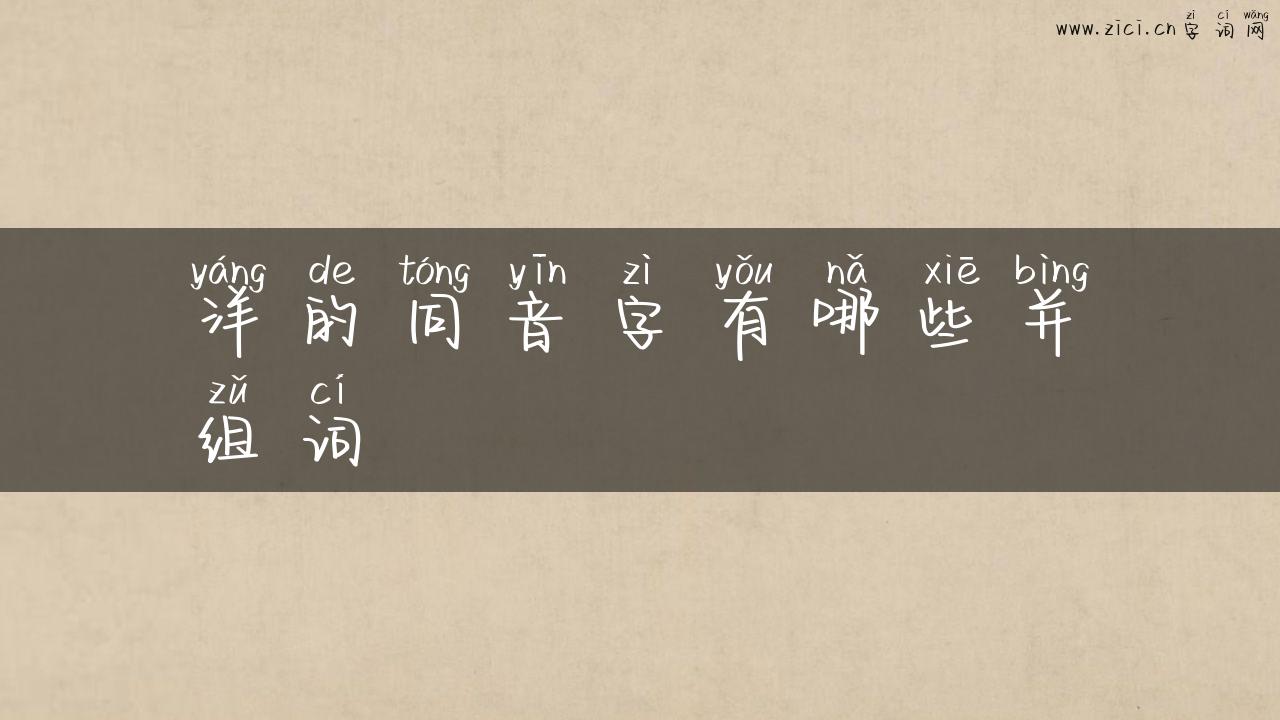 zì cí wǎng
www.zici.cn 字词网
yáng de tóng yīn zì yǒu nǎ xiē bìng
洋的同音字有哪些并
zǔ cí
组词